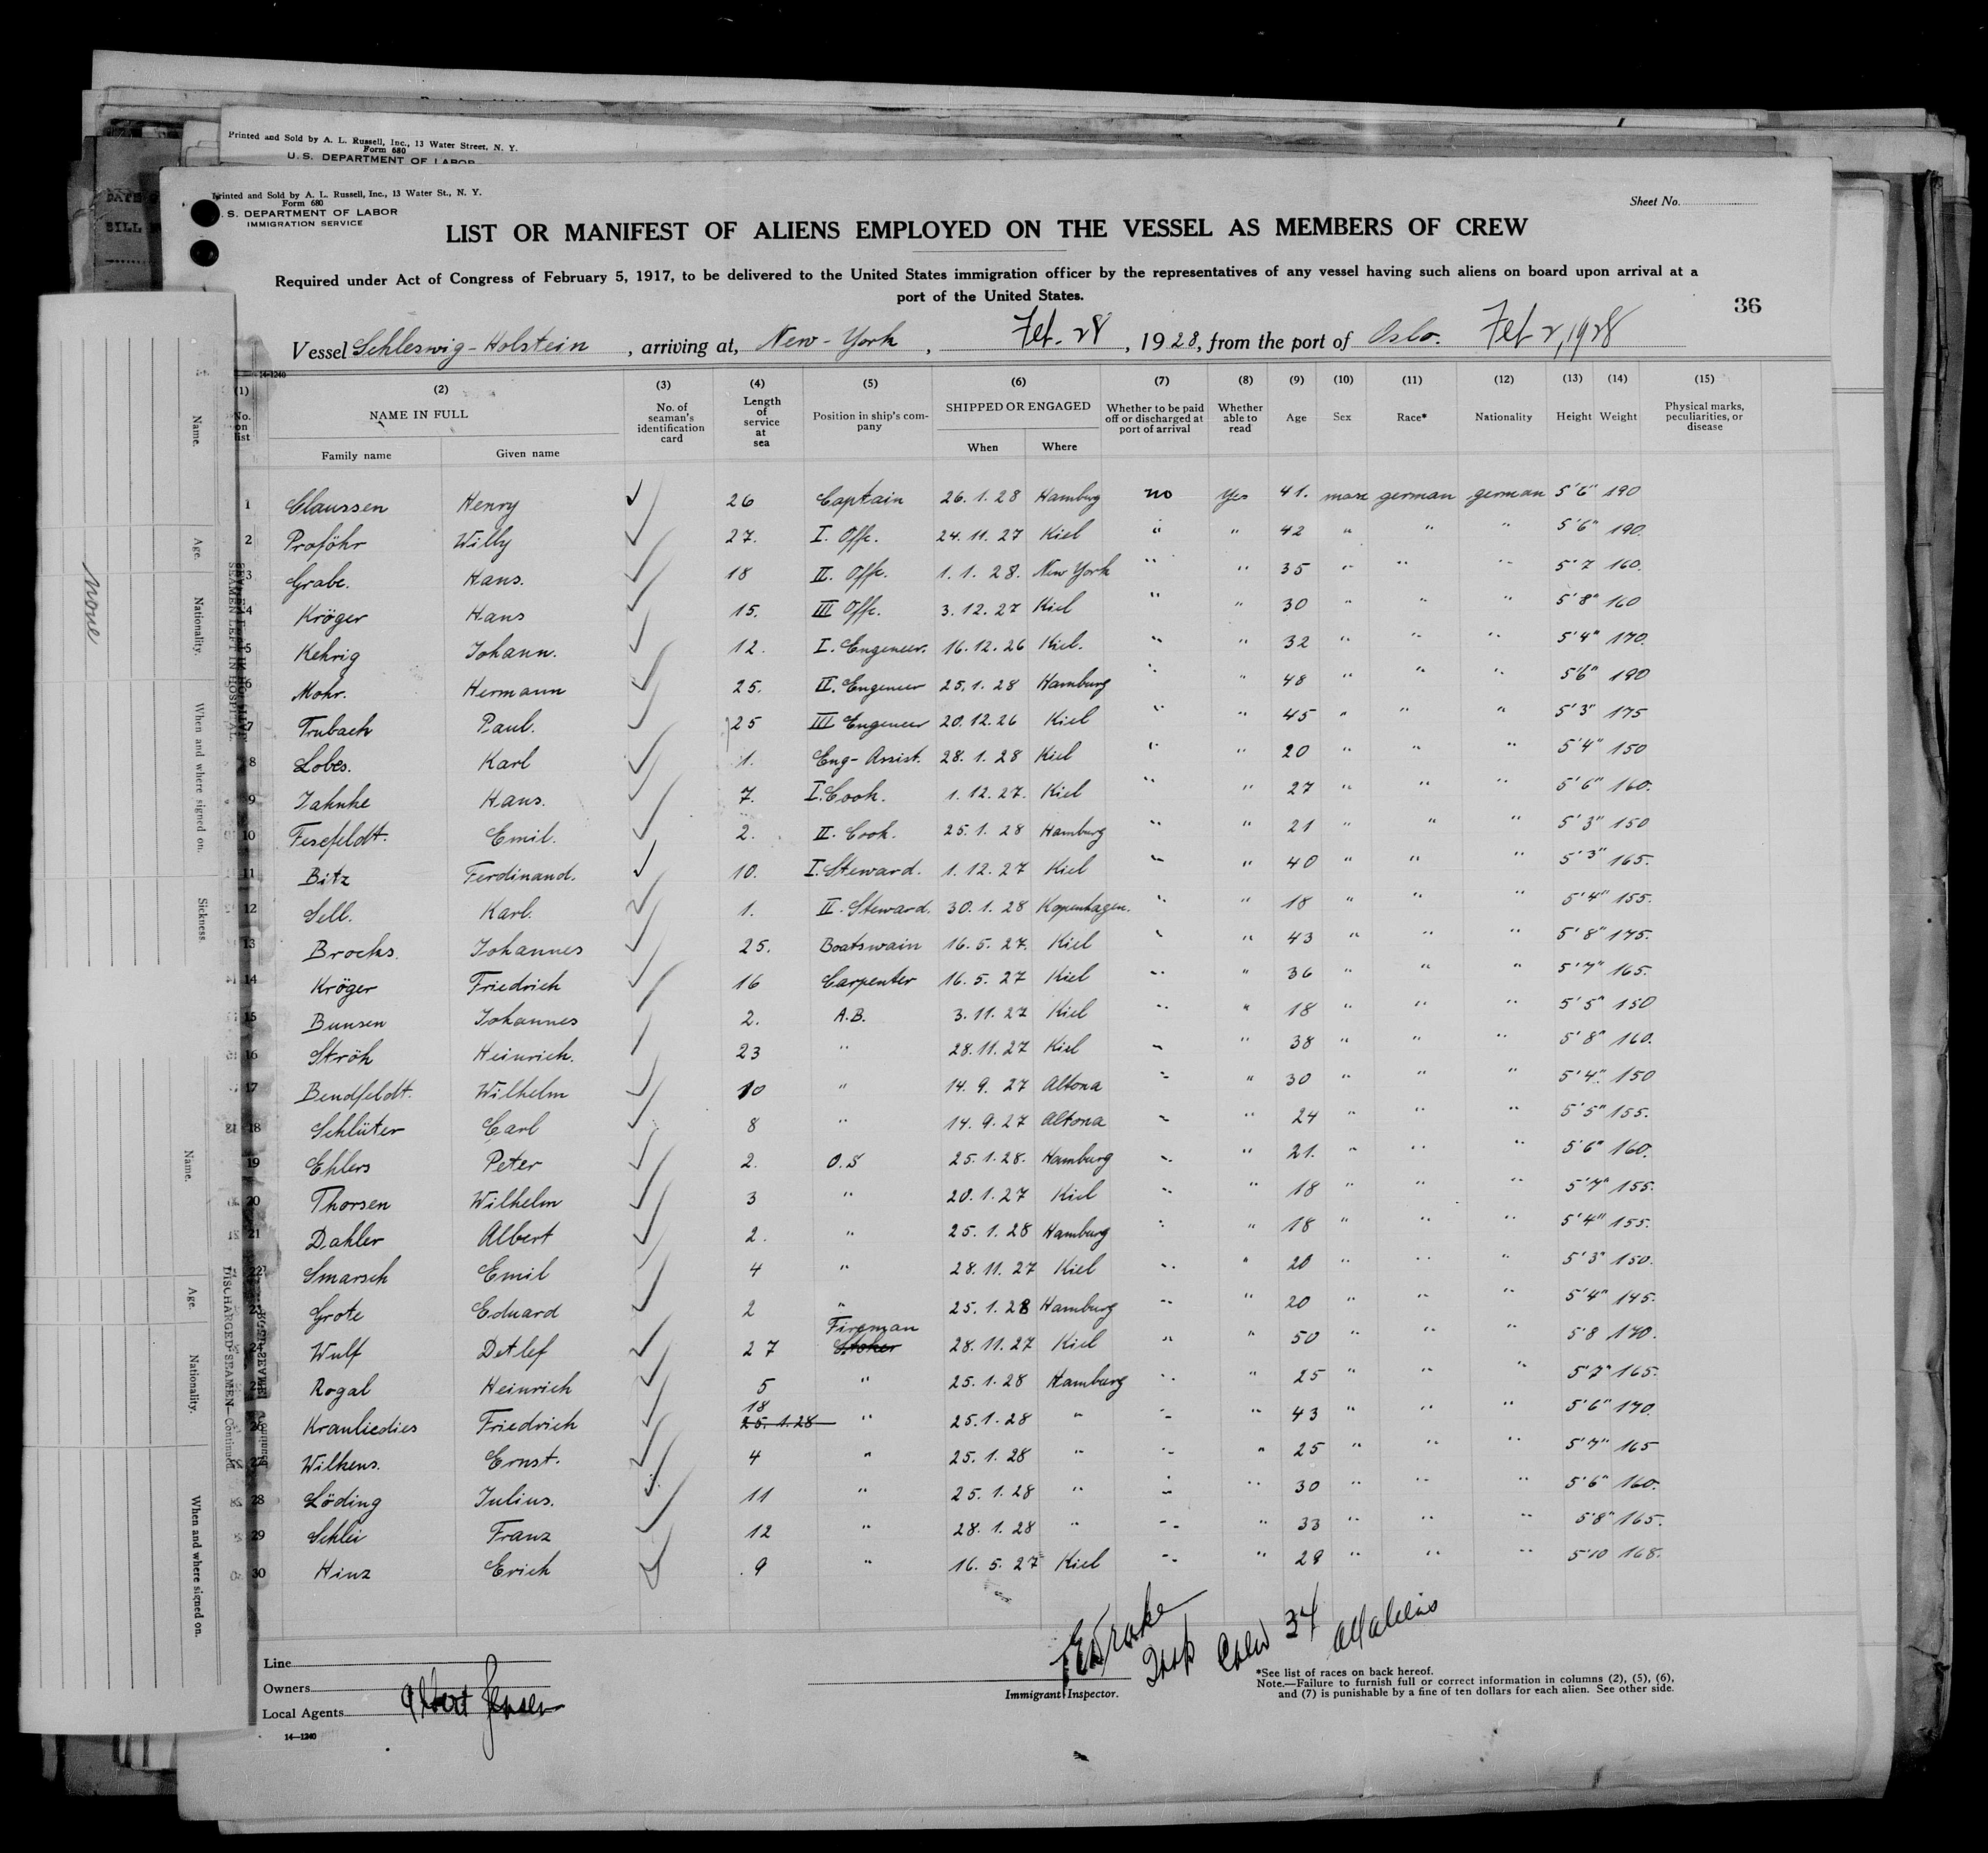 Printed and Sold by A. L. Russell, Inc., 13 Water Street, N. Y.
Form 680
U. S. DEPARTMENT OF LABOR
Printed and Sold by A. L. Russell, Inc., 13 Water St., N. Y.
Form 680
. S. DEPARTMENT OF LABOR
IMMIGRATION SERVICE
Sheet No.
LIST OR MANIFEST OF ALIENS EMPLOYED ON THE VESSEL AS MEMBERS OF CREW
Required under Act of Congress of February 5, 1917, to be delivered to the United States immigration officer by the representatives of any vessel having such aliens on board upon arrival at a
port of the United States.
36
Vessel Schleswig-Holstein, arriving at, New-York, Feb. 28, 1928, from the port of Oslo. Feb 2, 1928
14-1240
(1) (2) (3) (4) (5) (6) (7) (8) (9) (10) (11) (12) (13) (14) (15)
No. on list NAME IN FULL Family name Given name No. of seaman's identification card Length of service at sea Position in ship's company SHIPPED OR ENGAGED When Where Whether to be paid off or discharged at port of arrival Whether able to read Age Sex Race* Nationality Height Weight Physical marks, peculiarities, or disease
1 Claussen Henry ✓ 26 Captain 26. 1. 28 Hamburg no Yes 41. german german 5'6" 190
2 Proföhr Willy ✓ 27. I. Offc. 24. 11. 27 Kiel " " 42 " " " 5'6" 190.
3 Grabe. Hans. ✓ 18 II. Offc. 1. 1. 28. New York " " 35 " " " 5'7 160.
4 Kröger Hans ✓ 15. III Offc. 3. 12. 27 Kiel " " 30 " " " 5'8" 160
5 Kehrig Johann. ✓ 12. I. Engeneer. 16. 12. 26 Kiel. " " 32 " " " 5'4" 170.
6 Mohr. Hermann ✓ 25. II. Engeneer 25. 1. 28 Hamburg " " 48 " " " 5'6" 190
7 Trubach Paul. ✓ 25 III Engeneer 20. 12. 26 Kiel " " 45 " " " 5'3" 175
8 Lobes. Karl ✓ 1. Eng-Assist. 28. 1. 28 Kiel " " 20 " " " 5'4" 150
9 Jahnke Hans. ✓ 7. I. Cook. 1. 12. 27. Kiel " " 27 " " " 5'6" 160.
10 Fesefeldt. Emil. ✓ 2. II. Cook. 25. 1. 28 Hamburg " " 21 " " " 5'3" 150
11 Bitz Ferdinand. ✓ 10. I. Steward. 1. 12. 27 Kiel " " 40 " " " 5'3" 165.
12 Sell. Karl. ✓ 1. II. Steward. 30. 1. 28 Kopenhagen. " " 18 " " " 5'4" 155.
13 Brocks. Johannes ✓ 25. Boatswain 16. 5. 27. Kiel " " 43 " " " 5'8" 175.
14 Kröger Friedrich ✓ 16 Carpenter 16. 5. 27 Kiel " " 36 " " " 5'7" 165.
15 Bunsen Johannes 2. A.B. 3. 11. 27 Kiel " " 18 " " " 5'5" 150
16 Ströh Heinrich. 23 " 28. 11. 27 Kiel " " 38 " " " 5'8" 160.
17 Bendfeldt. Wilhelm ✓ 10 " 14. 9. 27 Altona " " 30 " " " 5'4". 150
18 Schlüter Carl ✓ 8 " 14. 9. 27 Altona " " 24 " " " 5'5" 155.
19 Ehlers Peter ✓ 2. O.S 25. 1. 28. Hamburg " " 21. " " " 5'6" 160.
20 Thorsen Wilhelm ✓ 3 " 20. 1. 27 Kiel " " 18 " " " 5'7" 155.
21 Dahler Albert ✓ 2. " 25. 1. 28 Hamburg " " 18 " " " 5'4" 155.
22 Smarsch Emil 4 " 28. 11. 27 Kiel " " 20 " " " 5'3" 150.
23 Grote Eduard ✓ 2 " 25. 1. 28 Hamburg " " 20 " " " 5'4" 145.
24 Wulf Detlef ✓ 27 Fireman Stoker 28. 11. 27 Kiel " " 50 " " " 5'8 170.
25 Rogal Heinrich ✓ 5 " 25. 1. 28 Hamburg " " 25 " " " 5'7" 165.
26 Kranliedies Friedrich ✓ 18 25. 1. 28 " 25. 1. 28 " " " 43 " " " 5'6" 170.
27 Wilkens. Ernst. ✓ 4 " 25. 1. 28 " " " 25 " " " 5'7" 165
28 Löding Julius. ✓ 11 " 25. 1. 28 " " " 30 " " " 5'6" 160.
29 Schlei Franz ✓ 12 " 28. 1. 28 " " " 33 " " " 5'8" 165.
30 Hinz Erich ✓ 9 " 16. 5. 27 Kiel " " 29 " " " 5'10 168.
Line
Owners
Local Agents Albert Jensen
14—1240
Immigrant Inspector.
Crew 34 all aliens
*See list of races on back hereof.
Note.—Failure to furnish full or correct information in columns (2), (5), (6),
and (7) is punishable by a fine of ten dollars for each alien. See other side.
Name.
Age.
Nationality.
When and where signed on.
Sickness.
none
SEAMEN LEFT IN HOSPITAL
Name.
Age.
Nationality.
When and where signed on.
DISCHARGED SEAMEN—Continued